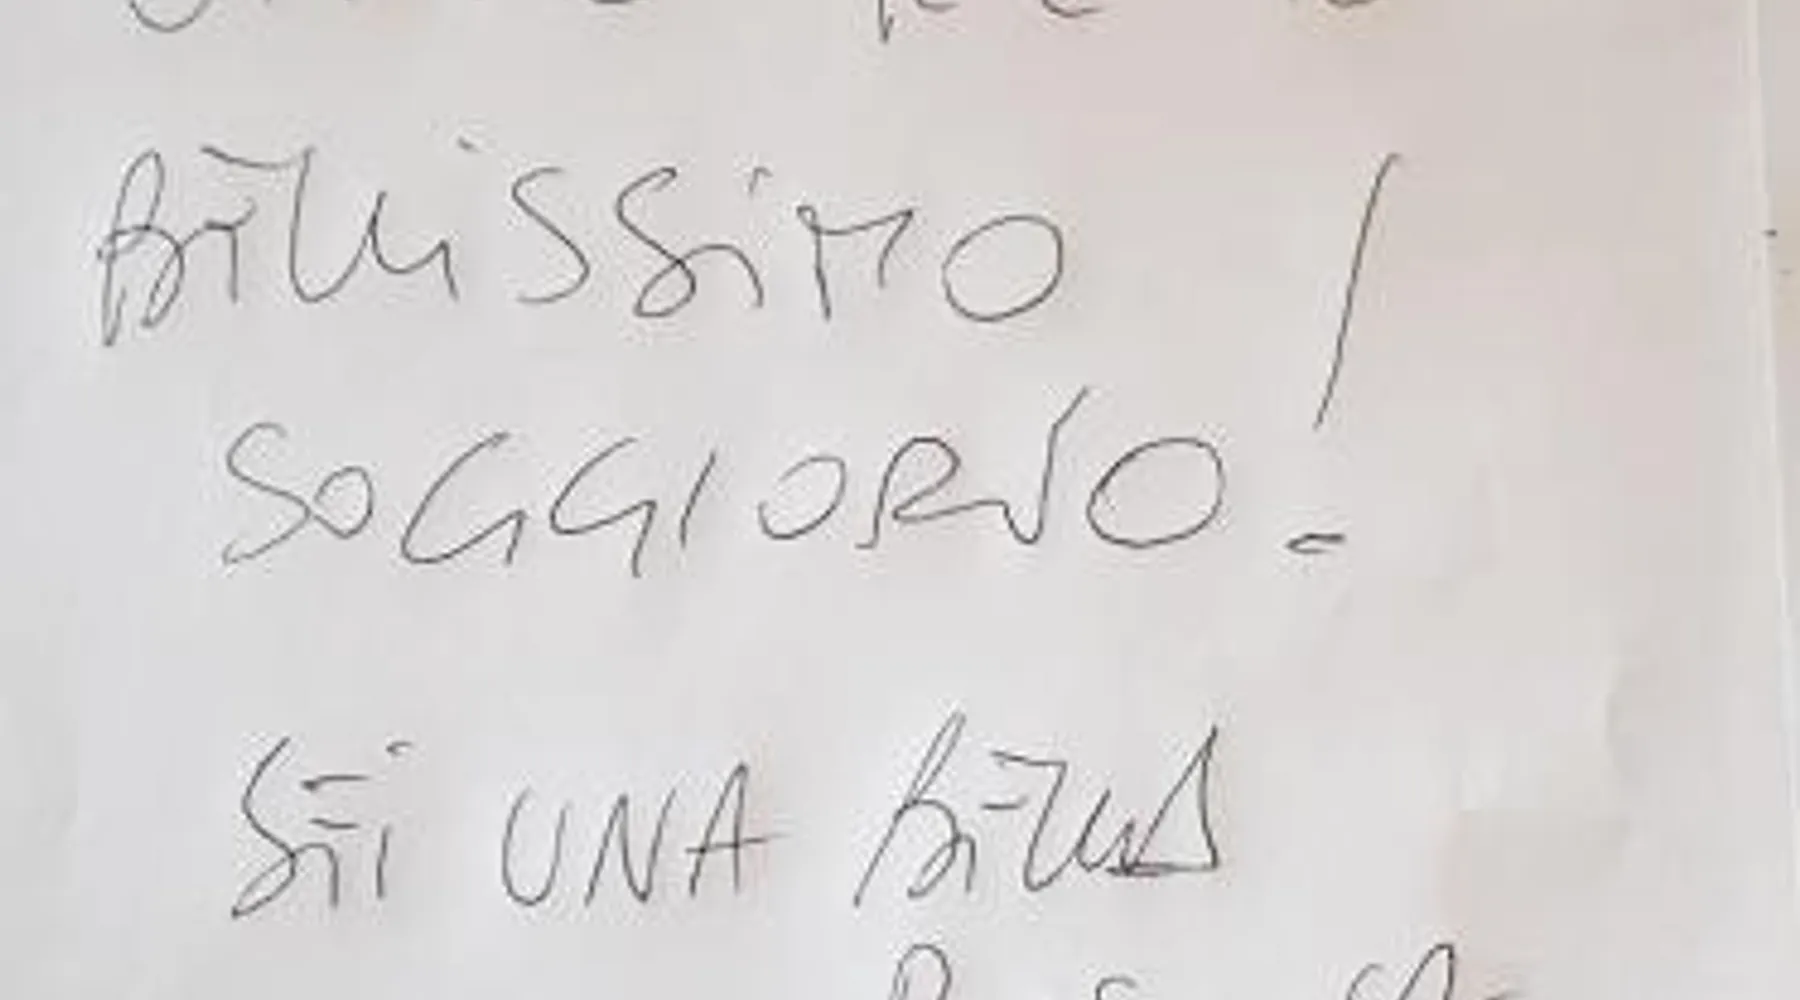 BELLISSIMO
SOGGIORNO!
SEI UNA BELLA